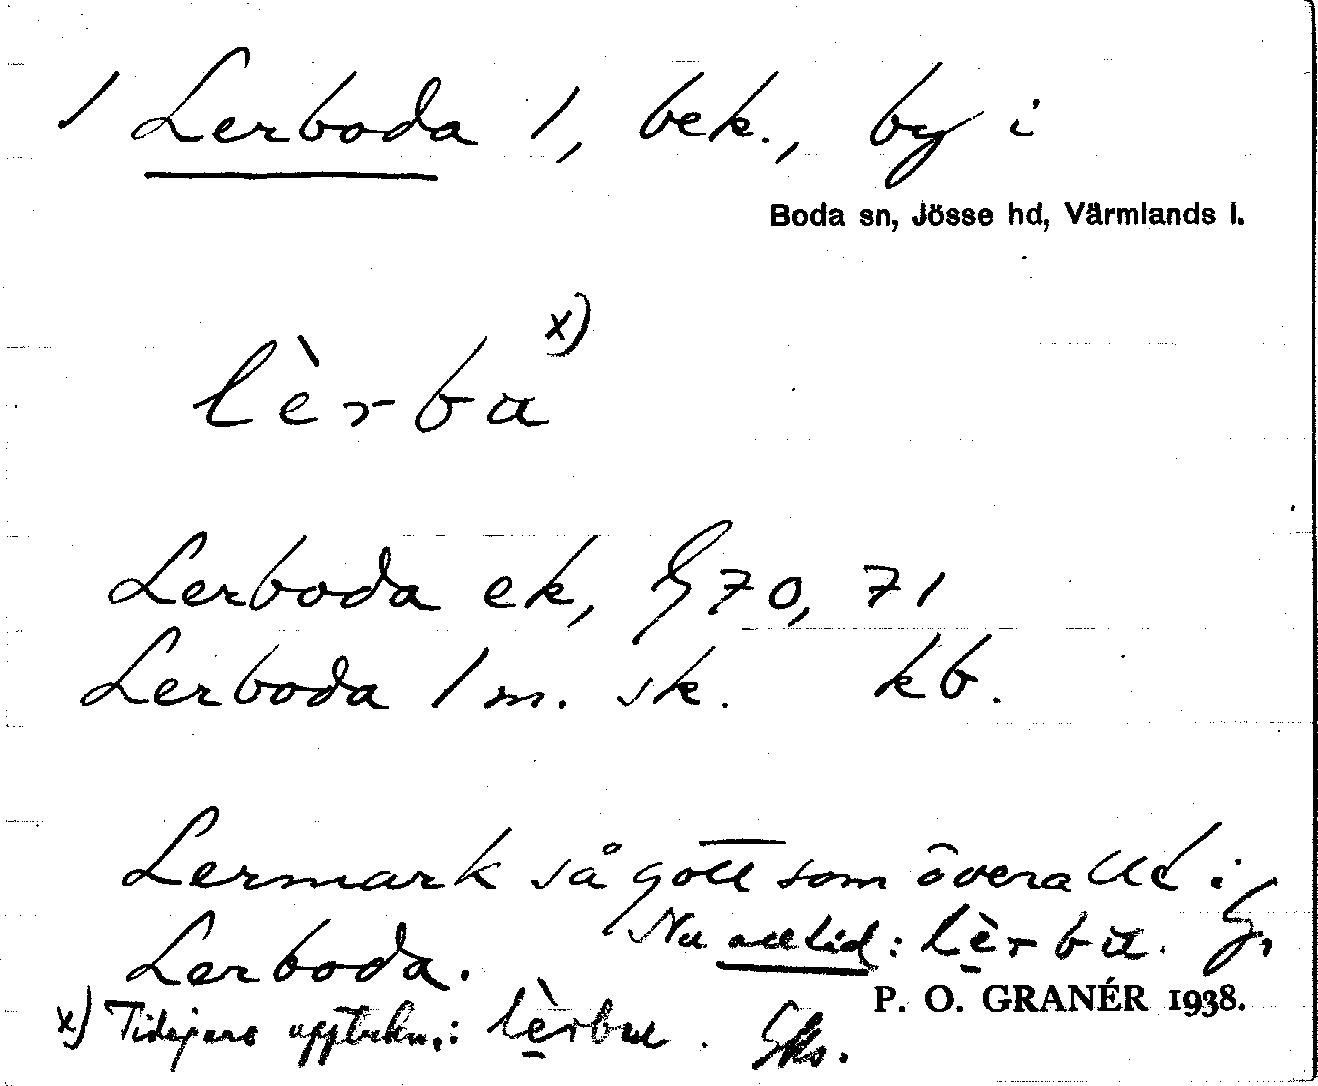 1 Lerboda 1, bek., by i
Boda sn, Jösse hd, Värmlands l.
lèrba x)
Lerboda ek, G 70, 71
Lerboda 1 m. sk. kb.
Lermark så gott som överallt i
Lerboda. Nu alltid: lèrba. G,
P. O. GRANÉR 1938.
x) Tidigare uppteckn.: lèrbu.